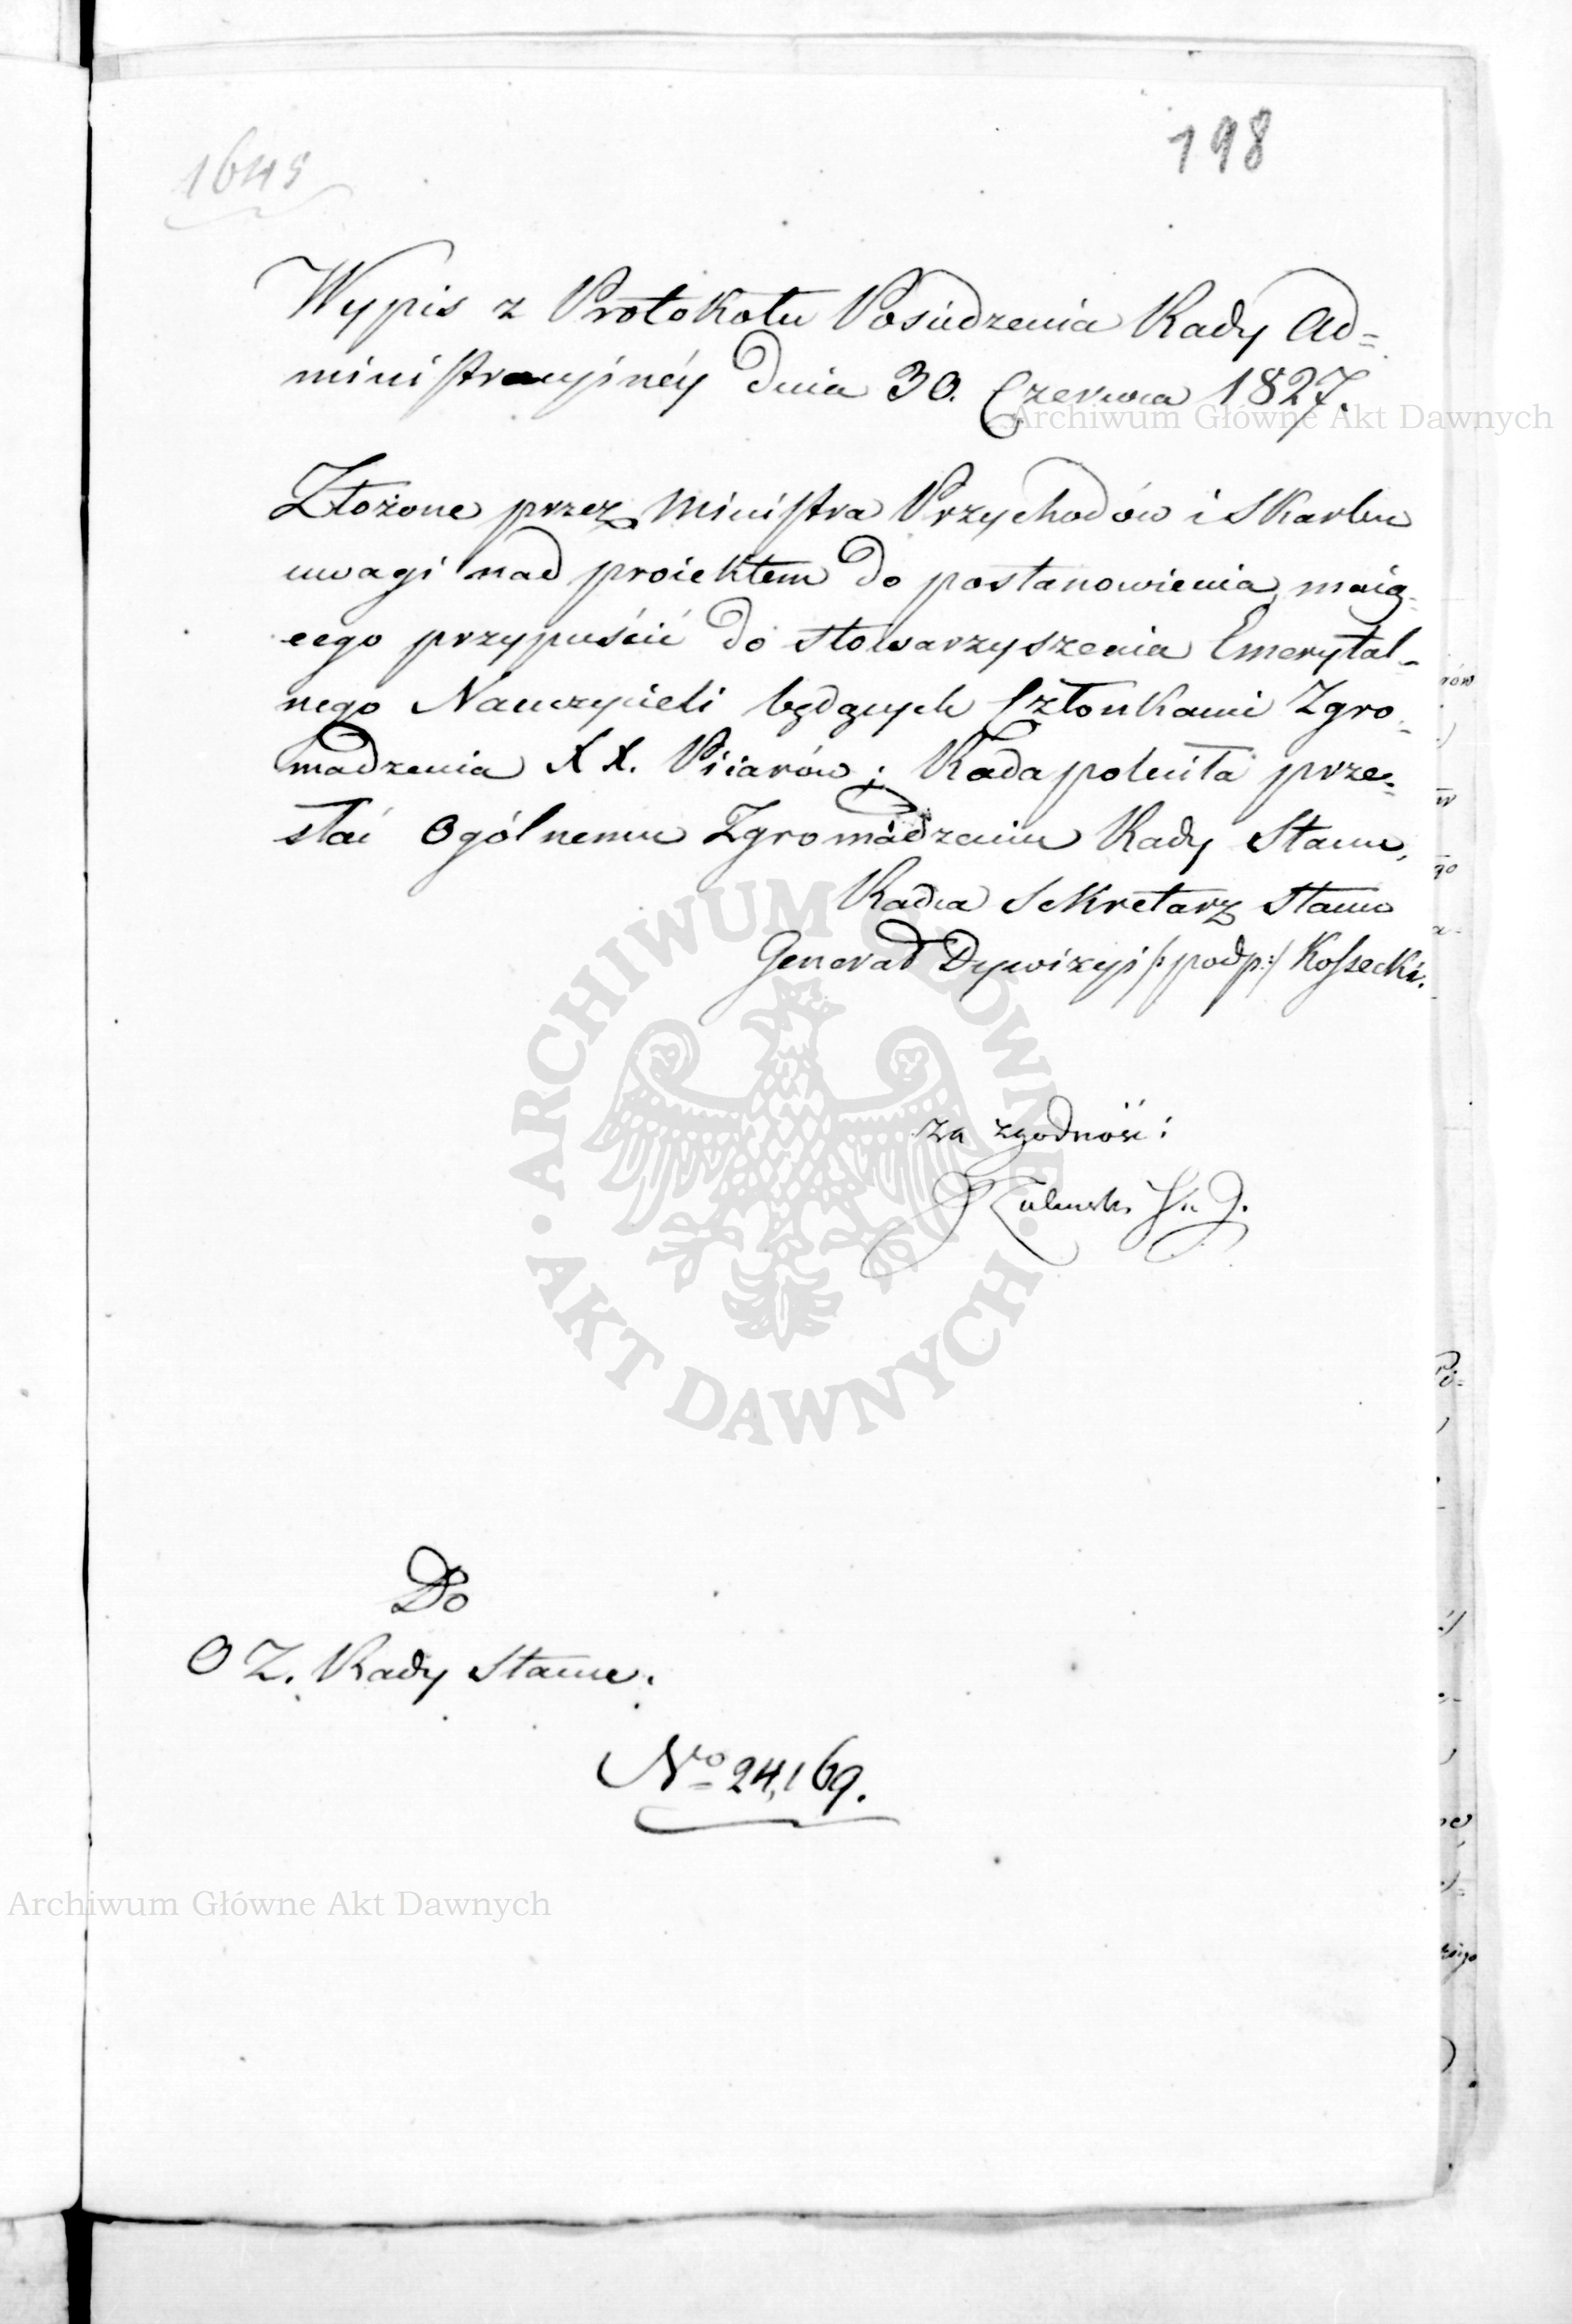 198
1645
Wypis z Protokołu Posiedzenia Rady Ad=
ministracyinéy dnia 30. Czerwca 1827.
Archiwum Główne Akt Dawnych
Złożone przez Ministra Przychodów i Skarbu
uwagi nad proiektem do postanowienia maią-
cego przypuścić do stowarzyszenia Emerytal-
nego Nauczycieli będących Członkami Zgro-
madzenia XX. Piiarów; Rada poleciła prze-
słać Ogólnemu Zgromadzeniu Rady Stanu,
Radca Sekretarz Stanu
Generał Dywizyi /:podp:/ Kossecki.
ARCHIWUM GŁÓWNE AKT DAWNYCH
za zgodność:
Do
O Z. Rady Stanu.
No 24,169.
Archiwum Główne Akt Dawnych